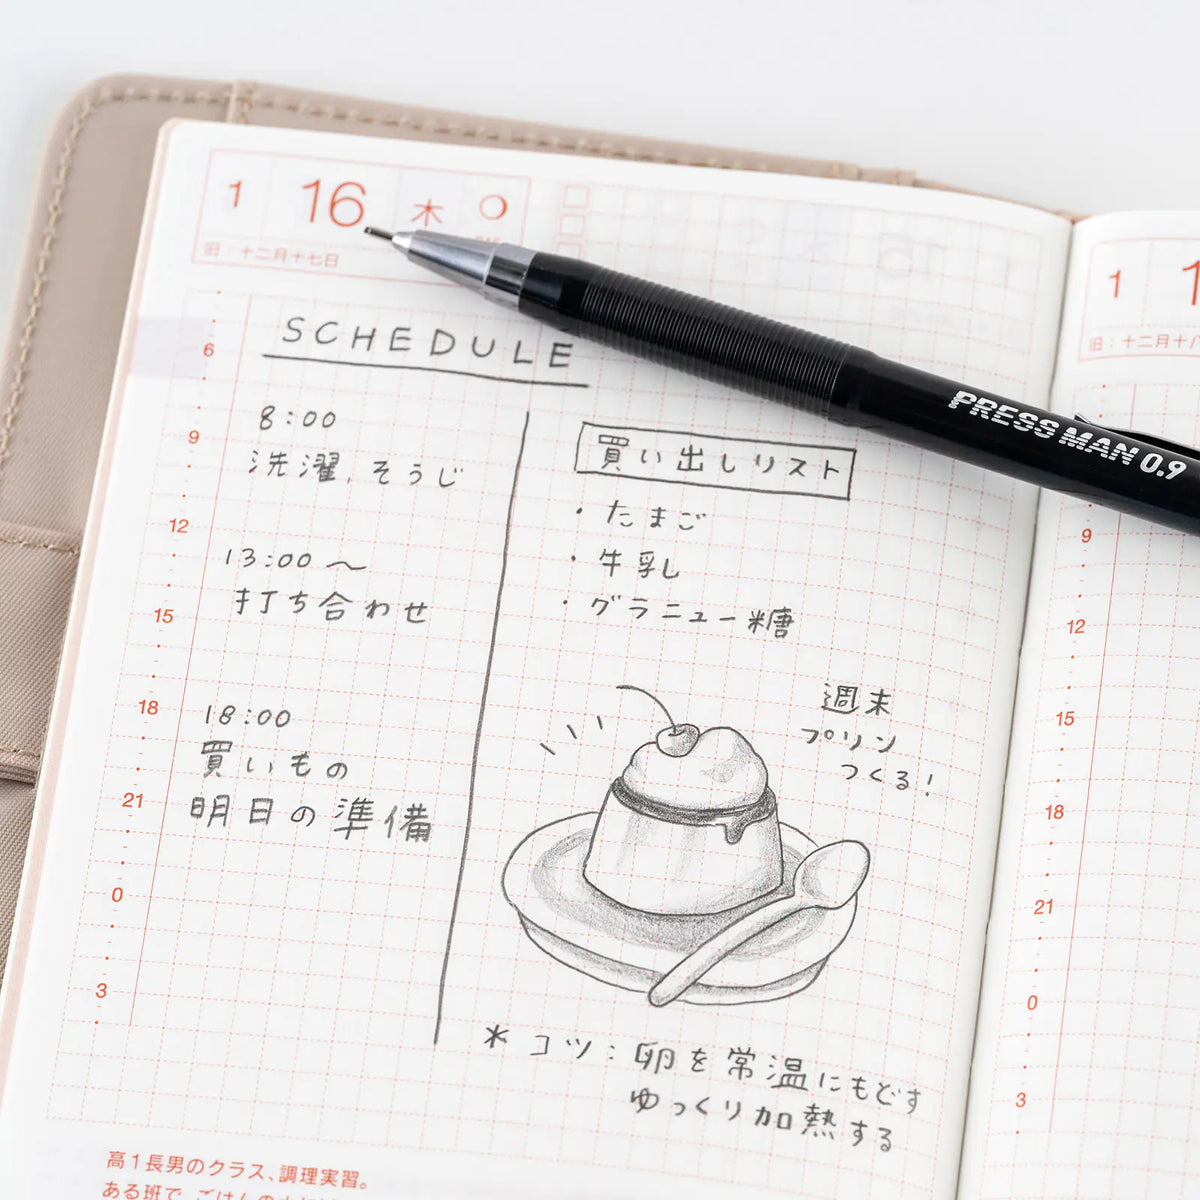 1 16 木
旧:十二月十七日
SCHEDULE
6
8:00
9
洗濯、そうじ
12
13:00〜
打ち合わせ
15
18
18:00
買いもの
21
明日の準備
0
3
買い出しリスト
・たまご
・牛乳
・グラニュー糖
週末
プリン
つくる!
＊コツ:卵を常温にもどす
ゆっくり加熱する
高1長男のクラス、調理実習。
ある班で、ごはんの
PRESS MAN 0.9
1
旧:十二月十八
9
12
15
18
21
0
3